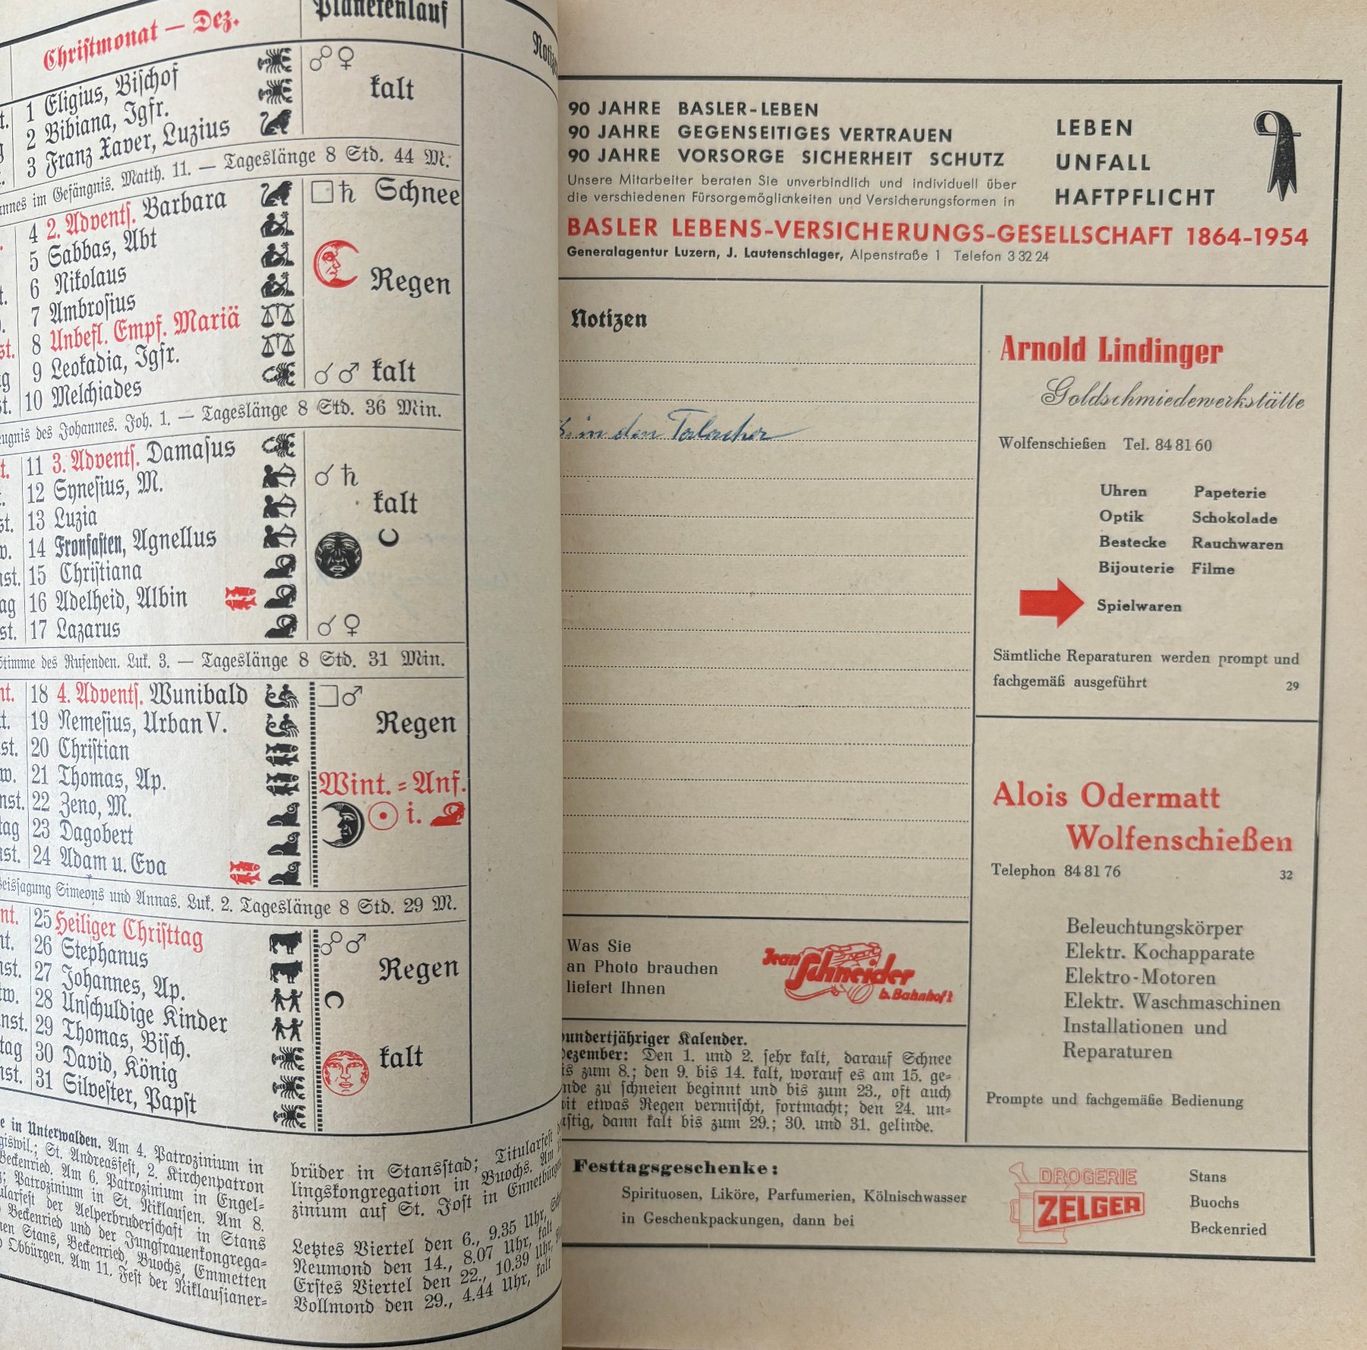 Christmonat — Dez.
Planetenlauf
1 Eligius, Bischof
2 Bibiana, Jgfr.
kalt
3 Franz Xaver, Luzius
im Gefängnis. Matth. 11. — Tageslänge 8 Std. 44 M.
4 2. Advents. Barbara
Schnee
5 Sabbas, Abt
6 Nikolaus
Regen
7 Ambrosius
8 Unbefl. Empf. Mariä
9 Leokadia, Jgfr.
kalt
10 Melchiades
des Johannes. Joh. 1. — Tageslänge 8 Std. 36 Min.
11 3. Advents. Damasus
12 Synesius, M.
kalt
13 Luzia
14 Fronfasten, Agnellus
15 Christiana
16 Adelheid, Albin
17 Lazarus
Stimme des Rufenden. Luk. 3. — Tageslänge 8 Std. 31 Min.
18 4. Advents. Wunibald
19 Nemesius, Urban V.
Regen
20 Christian
21 Thomas, Ap.
Wint.=Anf.
22 Zeno, M.
i.
23 Dagobert
24 Adam u. Eva
Weissagung Simeons und Annas. Luk. 2. Tageslänge 8 Std. 29 M.
25 Heiliger Christtag
26 Stephanus
Regen
27 Johannes, Ap.
28 Unschuldige Kinder
29 Thomas, Bisch.
kalt
30 David, König
31 Silvester, Papst
in Unterwalden. Am 4. Patrozinium in
St. Andreasfest, 2. Kirchenpatron
Beckenried. Am 6. Patrozinium in Engel-
Patrozinium in St. Niklausen. Am 8.
der Aelperbruderschaft in Stans
Beckenried und der Jungfrauenkongrega-
Stans, Beckenried, Buochs, Emmetten
Obbürgen. Am 11. Fest der Niklausianer-
brüder in Stansstad; Titularfest
lingskongregation in Buochs. Am
zinium auf St. Jost in Ennetbürgen
Letztes Viertel den 6., 9.35 Uhr,
Neumond den 14., 8.07 Uhr, kalt
Erstes Viertel den 22., 10.39 Uhr,
Vollmond den 29., 4.44 Uhr, kalt
90 JAHRE BASLER-LEBEN
90 JAHRE GEGENSEITIGES VERTRAUEN
90 JAHRE VORSORGE SICHERHEIT SCHUTZ
Unsere Mitarbeiter beraten Sie unverbindlich und individuell über
die verschiedenen Fürsorgemöglichkeiten und Versicherungsformen in
LEBEN
UNFALL
HAFTPFLICHT
BASLER LEBENS-VERSICHERUNGS-GESELLSCHAFT 1864-1954
Generalagentur Luzern, J. Lautenschlager, Alpenstraße 1 Telefon 3 32 24
Notizen
in den
Arnold Lindinger
Goldschmiedewerkstätte
Wolfenschießen Tel. 84 81 60
Uhren Papeterie
Optik Schokolade
Bestecke Rauchwaren
Bijouterie Filme
Spielwaren
Sämtliche Reparaturen werden prompt und
fachgemäß ausgeführt 29
Alois Odermatt
Wolfenschießen
Telephon 84 81 76 32
Beleuchtungskörper
Elektr. Kochapparate
Elektro-Motoren
Elektr. Waschmaschinen
Installationen und
Reparaturen
Prompte und fachgemäße Bedienung
Was Sie
an Photo brauchen
liefert Ihnen
Jean Schneider
b. Bahnhof!
hundertjähriger Kalender.
Dezember: Den 1. und 2. sehr kalt, darauf Schnee
bis zum 8.; den 9. bis 14. kalt, worauf es am 15. ge-
nde zu schneien beginnt und bis zum 23., oft auch
mit etwas Regen vermischt, fortmacht; den 24. un-
luftig, dann kalt bis zum 29.; 30. und 31. gelinde.
Festtagsgeschenke:
Spirituosen, Liköre, Parfumerien, Kölnischwasser
in Geschenkpackungen, dann bei
DROGERIE
ZELGER
Stans
Buochs
Beckenried